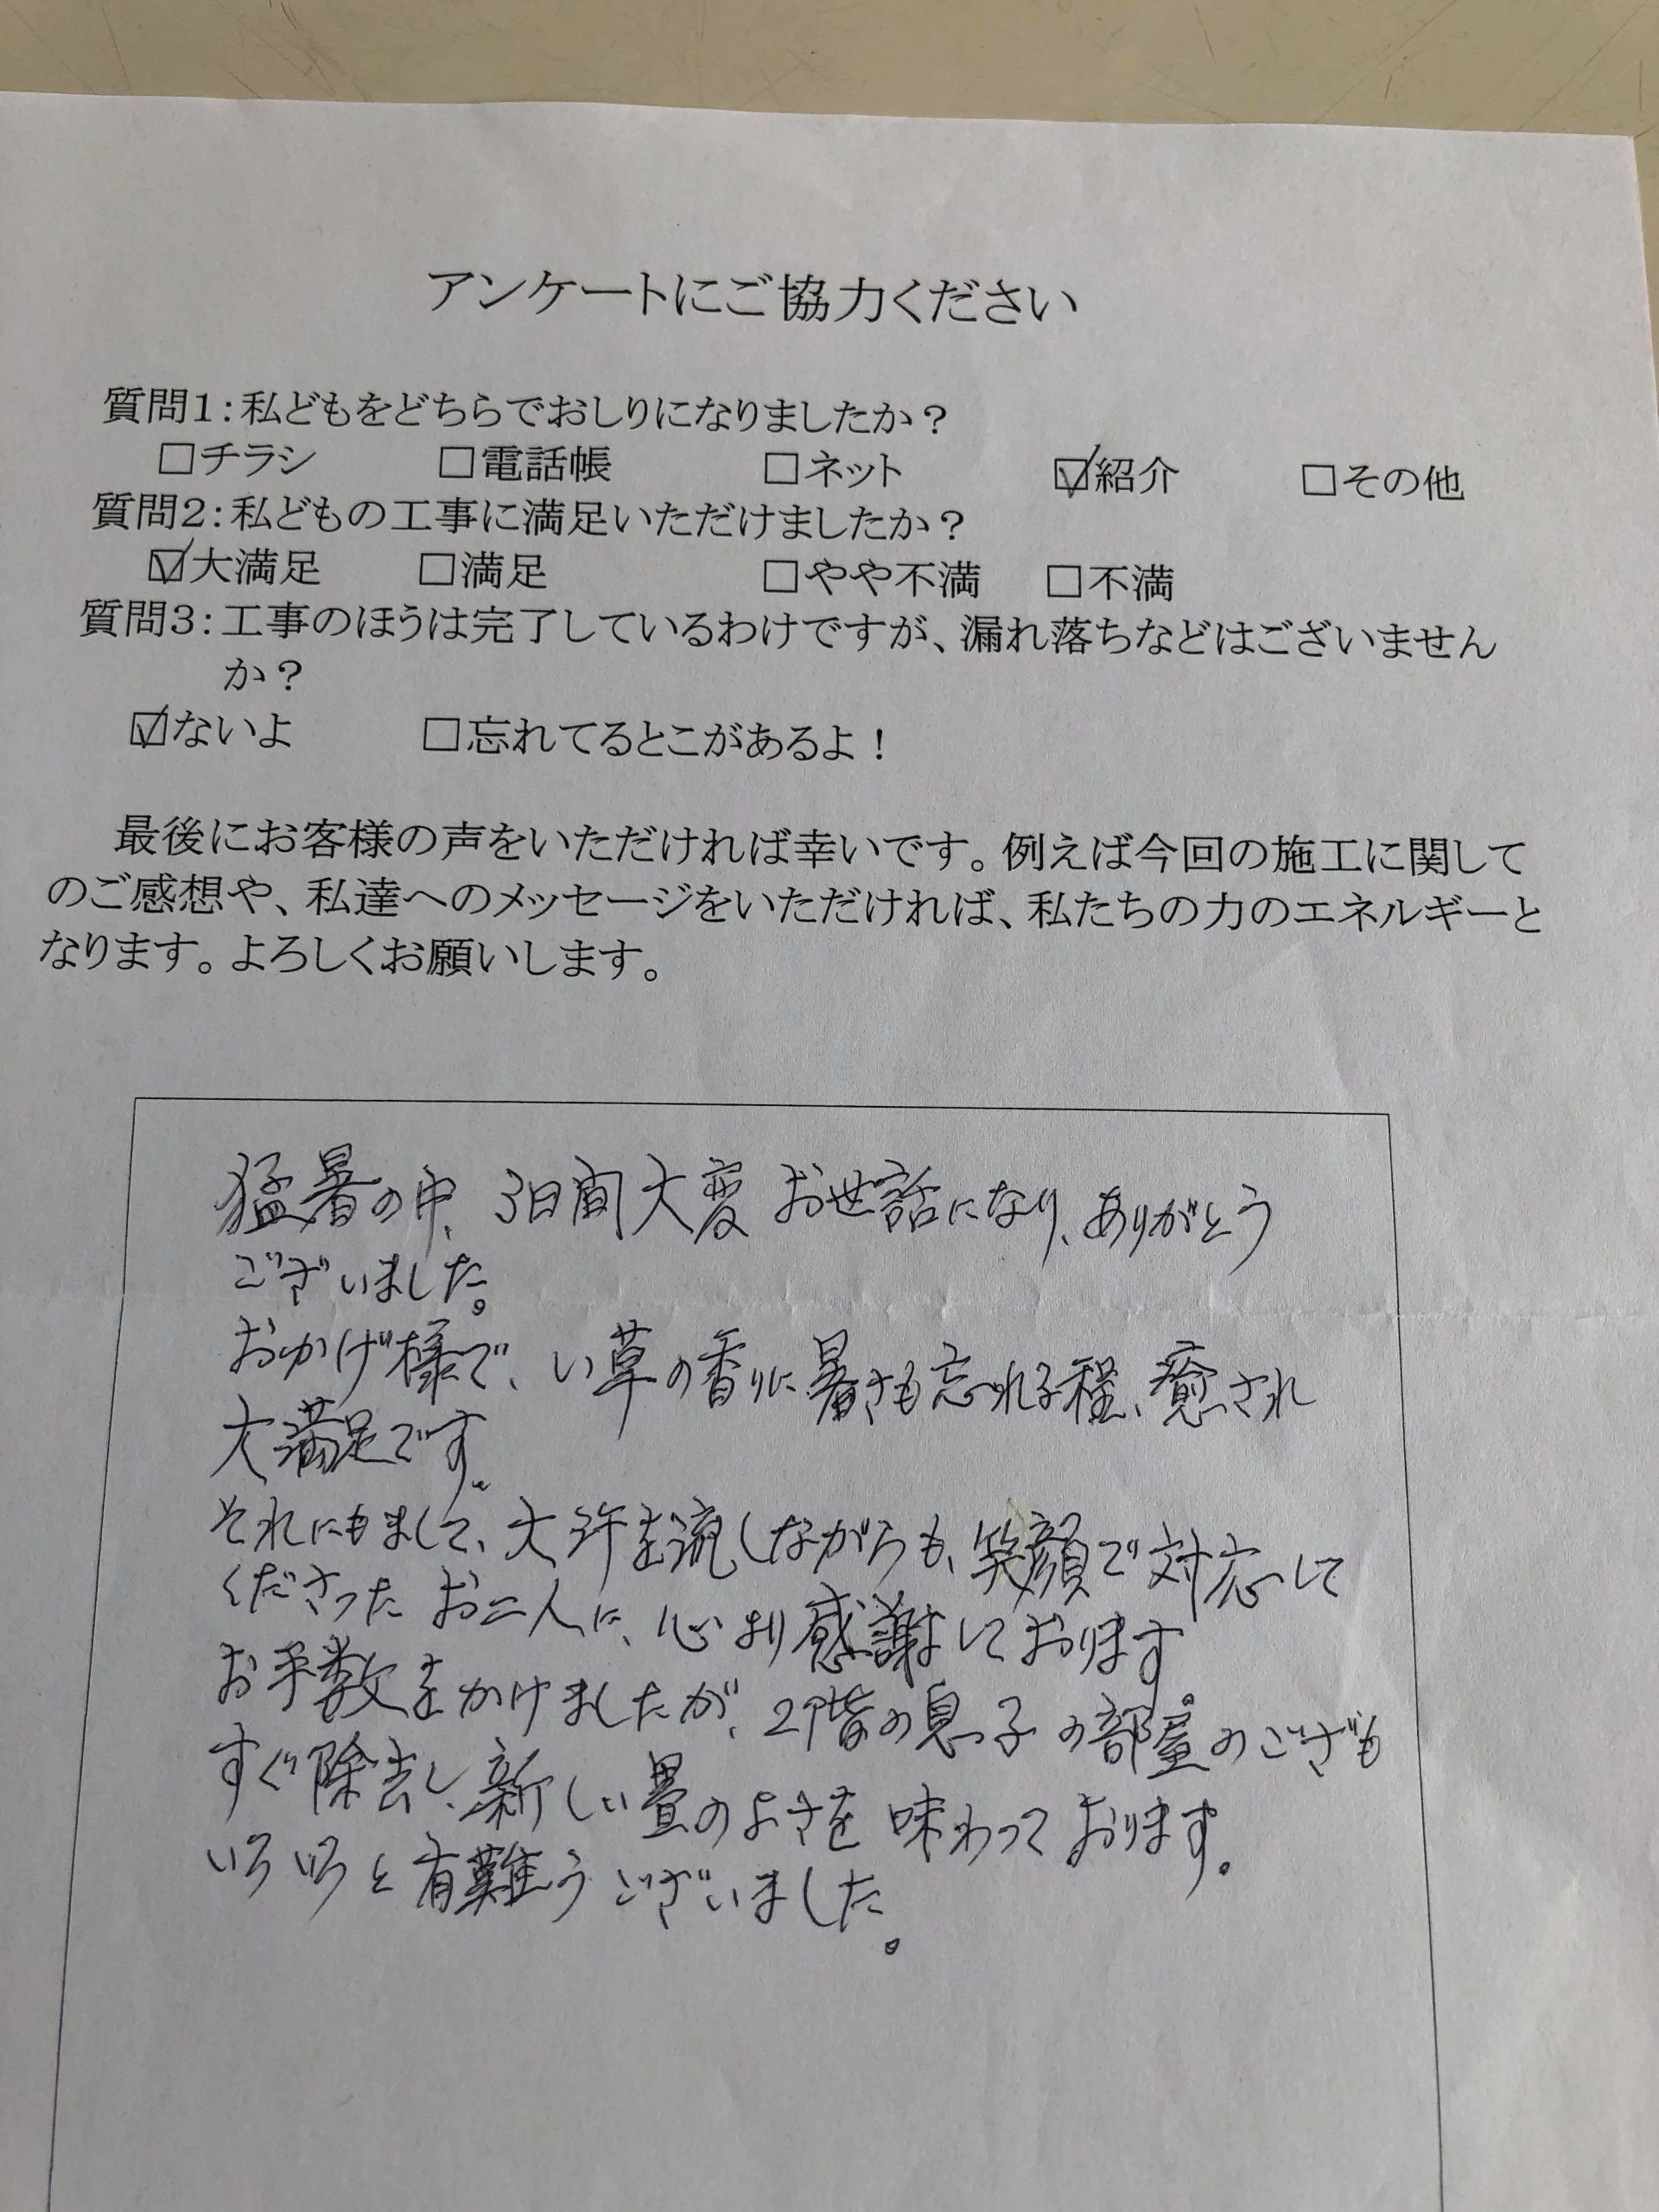 アンケートにご協力ください
質問1:私どもをどちらでおしりになりましたか?
□チラシ □電話帳 □ネット ☑紹介 □その他
質問2:私どもの工事に満足いただけましたか?
☑大満足 □満足 □やや不満 □不満
質問3:工事のほうは完了しているわけですが、漏れ落ちなどはございません
か?
☑ないよ □忘れてるとこがあるよ!
最後にお客様の声をいただければ幸いです。例えば今回の施工に関して
のご感想や、私達へのメッセージをいただければ、私たちの力のエネルギーと
なります。よろしくお願いします。
猛暑の中、3日間大変お世話になり、ありがとう
ございました。
おかげ様で、い草の香りに暑さも忘れる程、癒され
大満足です。
それにもまして、大汗を流しながらも、笑顔で対応して
くださったお二人に、心より感謝しております。
お手数をかけましたが、2階の息子の部屋のござも
すぐ除去し、新しい畳のよさを味わっております。
いろいろと有難うございました。